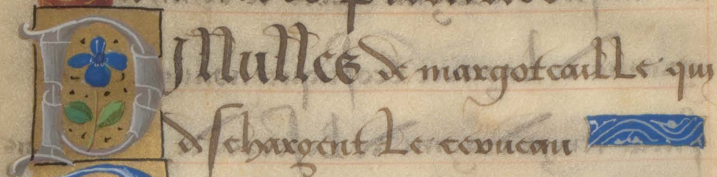 Pillulles de margotcaille qui
deschargent Le cerueau